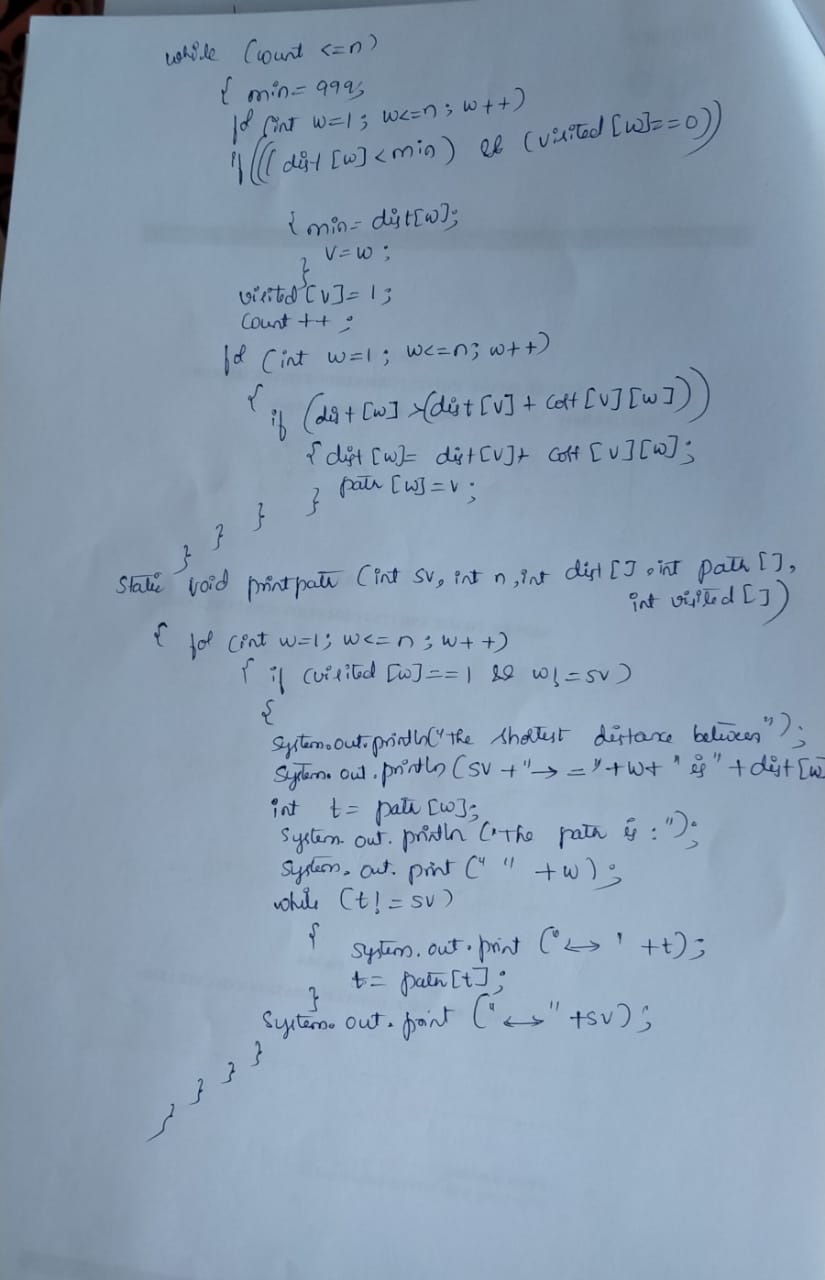 while (count <=n)
{ min= 999;
for (int w=1; w<=n; w++)
if(((dist [w] <min) && (visited [w]==0))
{ min= dist[w];
v=w ;
}
visited [v]= 1;
count ++ ;
for (int w=1; w<=n; w++)
{
if (dist [w] >(dist [v] + cost [v] [w]))
{ dist [w]= dist [v]+ cost [v] [w];
path [w] = v ;
} } } }
static void printpath (int sv, int n, int dist [], int path [],
int visited [])
{ for (int w=1; w<=n ; w++)
{ if (visited [w]==1 && w!=sv)
{
System.out.println("the shortest distance between");
System.out.println(sv +"→ ="+w+ " is" + dist [w
int t= path [w];
System.out.println ("The path is :");
System.out.print (" " +w) ;
while (t!=sv)
{
System.out.print ("↔ ' +t);
t= path[t];
}
System.out.print ("↔" +sv) ;
} } } }